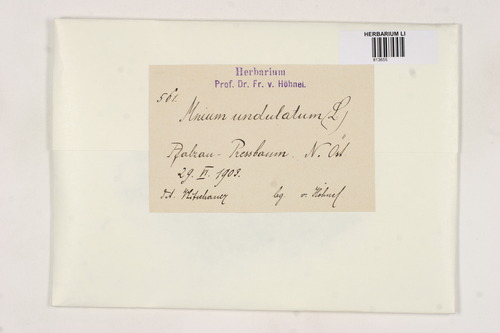 HERBARIUM LI
813655
Herbarium
Prof. Dr. Fr. v. Höhnel.
561.
Mnium undulatum (L)
Pfalzau - Pressbaum. N. Öst
29. VI. 1903.
det. leg. v. Höhnel